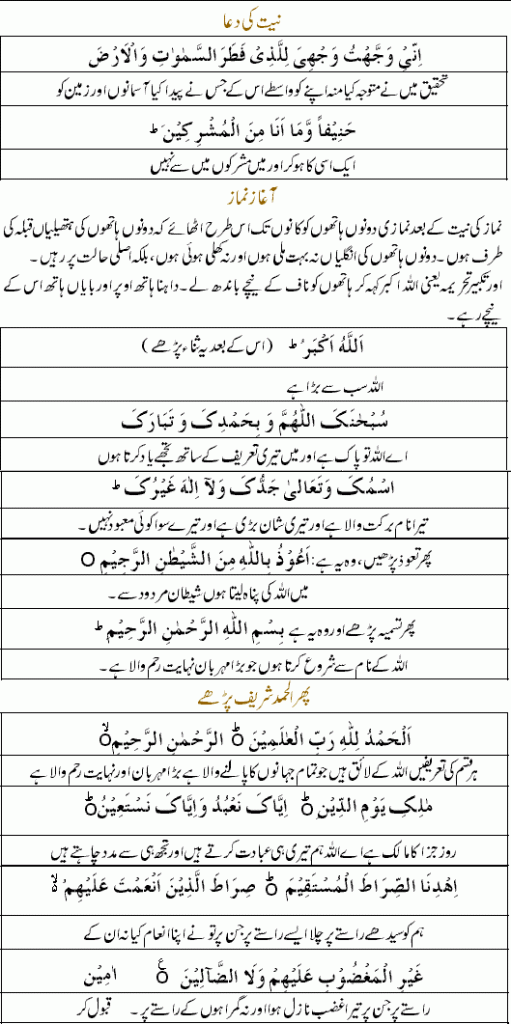 نیت کی دعا
اِنِّیْ وَجَّھْتُ وَجْھِیَ لِلَّذِیْ فَطَرَ السَّمٰوٰتِ وَالْاَرْضَ
تحقیق میں نے متوجہ کیا منہ اپنے کو واسطے اس کے جس نے پیدا کیا آسمانوں اور زمین کو
حَنِیْفاً وَّمَا اَنَا مِنَ الْمُشْرِکِیْنَ ط
ایک اسی کا ہو کر اور میں مشرکوں میں سے نہیں
آغازِ نماز
نماز کی نیت کے بعد نمازی دونوں ہاتھوں کو کانوں تک اس طرح اٹھائے کہ دونوں ہاتھوں کی ہتھیلیاں قبلہ کی
طرف ہوں۔ دونوں ہاتھوں کی انگلیاں نہ بہت ملی ہوں اور نہ کھلی ہوئی ہوں، بلکہ اصلی حالت پر رہیں۔
اور تکبیر تحریمہ یعنی اللہ اکبر کہہ کر ہاتھوں کو ناف کے نیچے باندھ لے۔ داہنا ہاتھ اوپر اور بایاں ہاتھ اس کے
نیچے رہے۔
اَللّٰهُ اَکْبَرُ ط (اس کے بعد یہ ثناء پڑھے)
اللہ سب سے بڑا ہے
سُبْحٰنَکَ اللّٰھُمَّ وَ بِحَمْدِکَ وَ تَبَارَکَ
اے اللہ تو پاک ہے اور میں تیری تعریف کے ساتھ تجھے یاد کرتا ہوں
اسْمُکَ وَتَعَالیٰ جَدُّکَ وَلَآ اِلٰهَ غَیْرُکَ ط
تیرا نام برکت والا ہے اور تیری شان بڑی ہے اور تیرے سوا کوئی معبود نہیں۔
پھر تعوذ پڑھیں، وہ یہ ہے: اَعُوْذُ بِاللّٰهِ مِنَ الشَّیْطٰنِ الرَّجِیْمِ ○
میں اللہ کی پناہ لیتا ہوں شیطان مردود سے۔
پھر تسمیہ پڑھے اور وہ یہ ہے بِسْمِ اللّٰهِ الرَّحْمٰنِ الرَّحِیْمِ ط
اللہ کے نام سے شروع کرتا ہوں جو بڑا مہربان نہایت رحم والا ہے۔
پھر الحمد شریف پڑھے
اَلْحَمْدُ لِلّٰهِ رَبِّ الْعٰلَمِیْنَ ○ط الرَّحْمٰنِ الرَّحِیْمِ ○لا
ہر قسم کی تعریفیں اللہ کے لائق ہیں جو تمام جہانوں کا پالنے والا ہے بڑا مہربان اور نہایت رحم والا ہے
مٰلِکِ یَوْمِ الدِّیْنِ ○ط اِیَّاکَ نَعْبُدُ وَاِیَّاکَ نَسْتَعِیْنُ ○ط
روز جزا کا مالک ہے اے اللہ ہم تیری ہی عبادت کرتے ہیں اور تجھ ہی سے مدد چاہتے ہیں
اِھْدِنَا الصِّرَاطَ الْمُسْتَقِیْمَ ○ط صِرَاطَ الَّذِیْنَ اَنْعَمْتَ عَلَیْھِمْ ○لا
ہم کو سیدھے راستے پر چلا ایسے راستے پر جن پر تو نے اپنا انعام کیا نہ ان کے
غَیْرِ الْمَغْضُوْبِ عَلَیْھِمْ وَلَا الضَّآلِّیْنَ ○ع اٰمِیْن
راستے پر جن پر تیرا غضب نازل ہوا اور نہ گمراہوں کے راستے پر۔ قبول کر